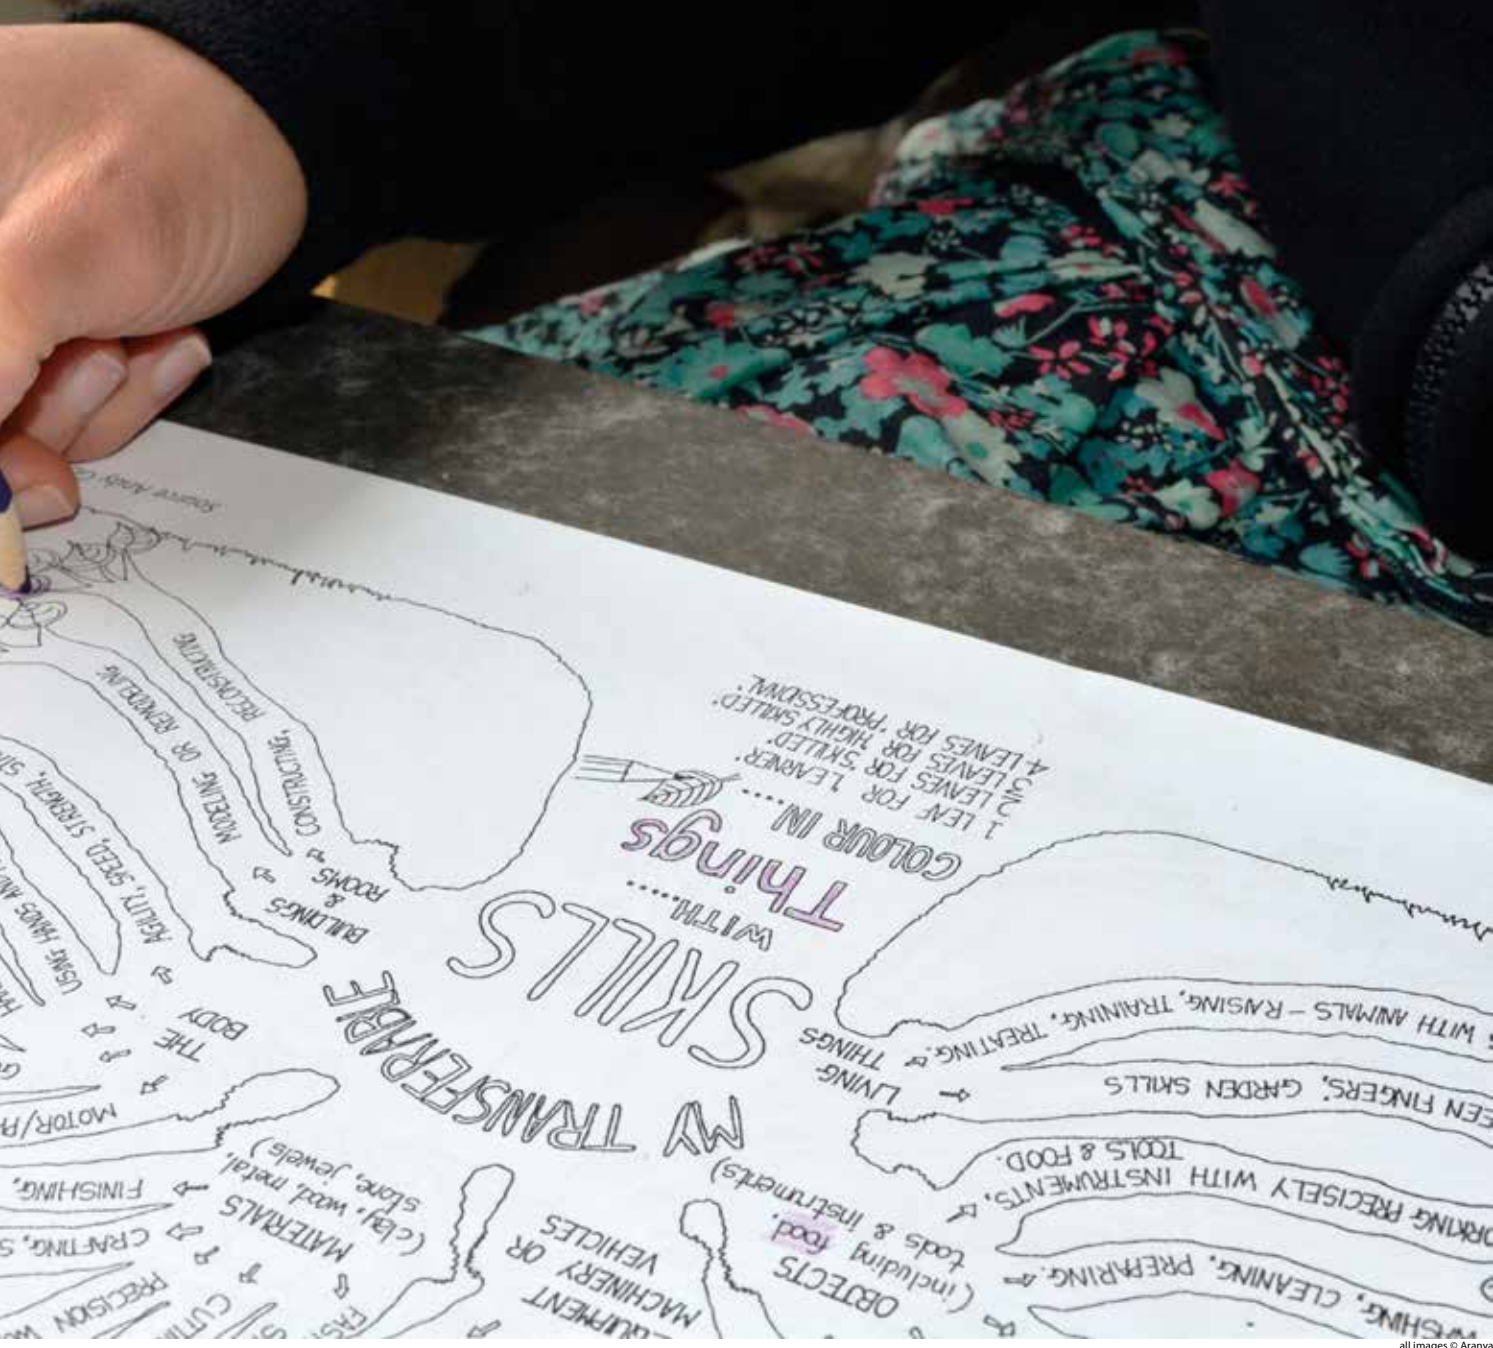 MY TRANSFERABLE
SKILLS
WITH....
Things
COLOUR IN ....
1 LEAF FOR 'LEARNER'.
2 LEAVES FOR 'SKILLED'.
3 LEAVES FOR 'HIGHLY SKILLED'.
4 LEAVES FOR 'PROFESSIONAL'.
LIVING
THINGS
WITH ANIMALS - RAISING, TRAINING, TREATING.
FINGERS', GARDEN SKILLS
OBJECTS
(including food,
tools & instruments)
PRECISELY WITH INSTRUMENTS,
TOOLS & FOOD.
WASHING, CLEANING, PREPARING.
EQUIPMENT
MACHINERY OR
VEHICLES
MATERIALS
(clay, wood, metal,
stone, jewels)
FINISHING,
CRAFTING,
PRECISION
THE
BODY
USING HANDS
AGILITY, SPEED, STRENGTH,
BUILDINGS
&
ROOMS
MODELING OR REMODELING
CONSTRUCTING, RECONSTRUCTING
Source
all images © Aranya